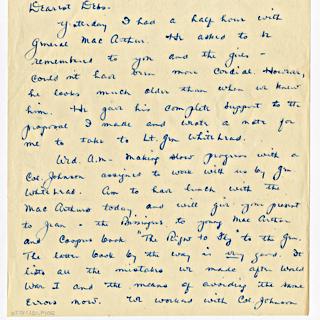 Dearest Debs-
Yesterday I had a half hour with
General MacArthur. He asked to be
remembered to you and the girls -
couldn't have been more cordial. However,
he looks much older than when we knew
him. He gave his complete support to the
proposal I made and wrote a note for
me to take to Lt. Gen Whitehead.
Wed. A.M. - Making slow progress with a
Col. Johnson assigned to work with us by Gen
Whitehead. Am to have lunch with the
MacArthurs today and will give your present
to Jean - the to young Mac Arthur
and Coopers book "The Right to Fly" to the Gen.
The latter book by the way is very good. It
lists all the mistakes we made after World
War I and the means of avoiding the same
errors now. We worked with Col. Johnson